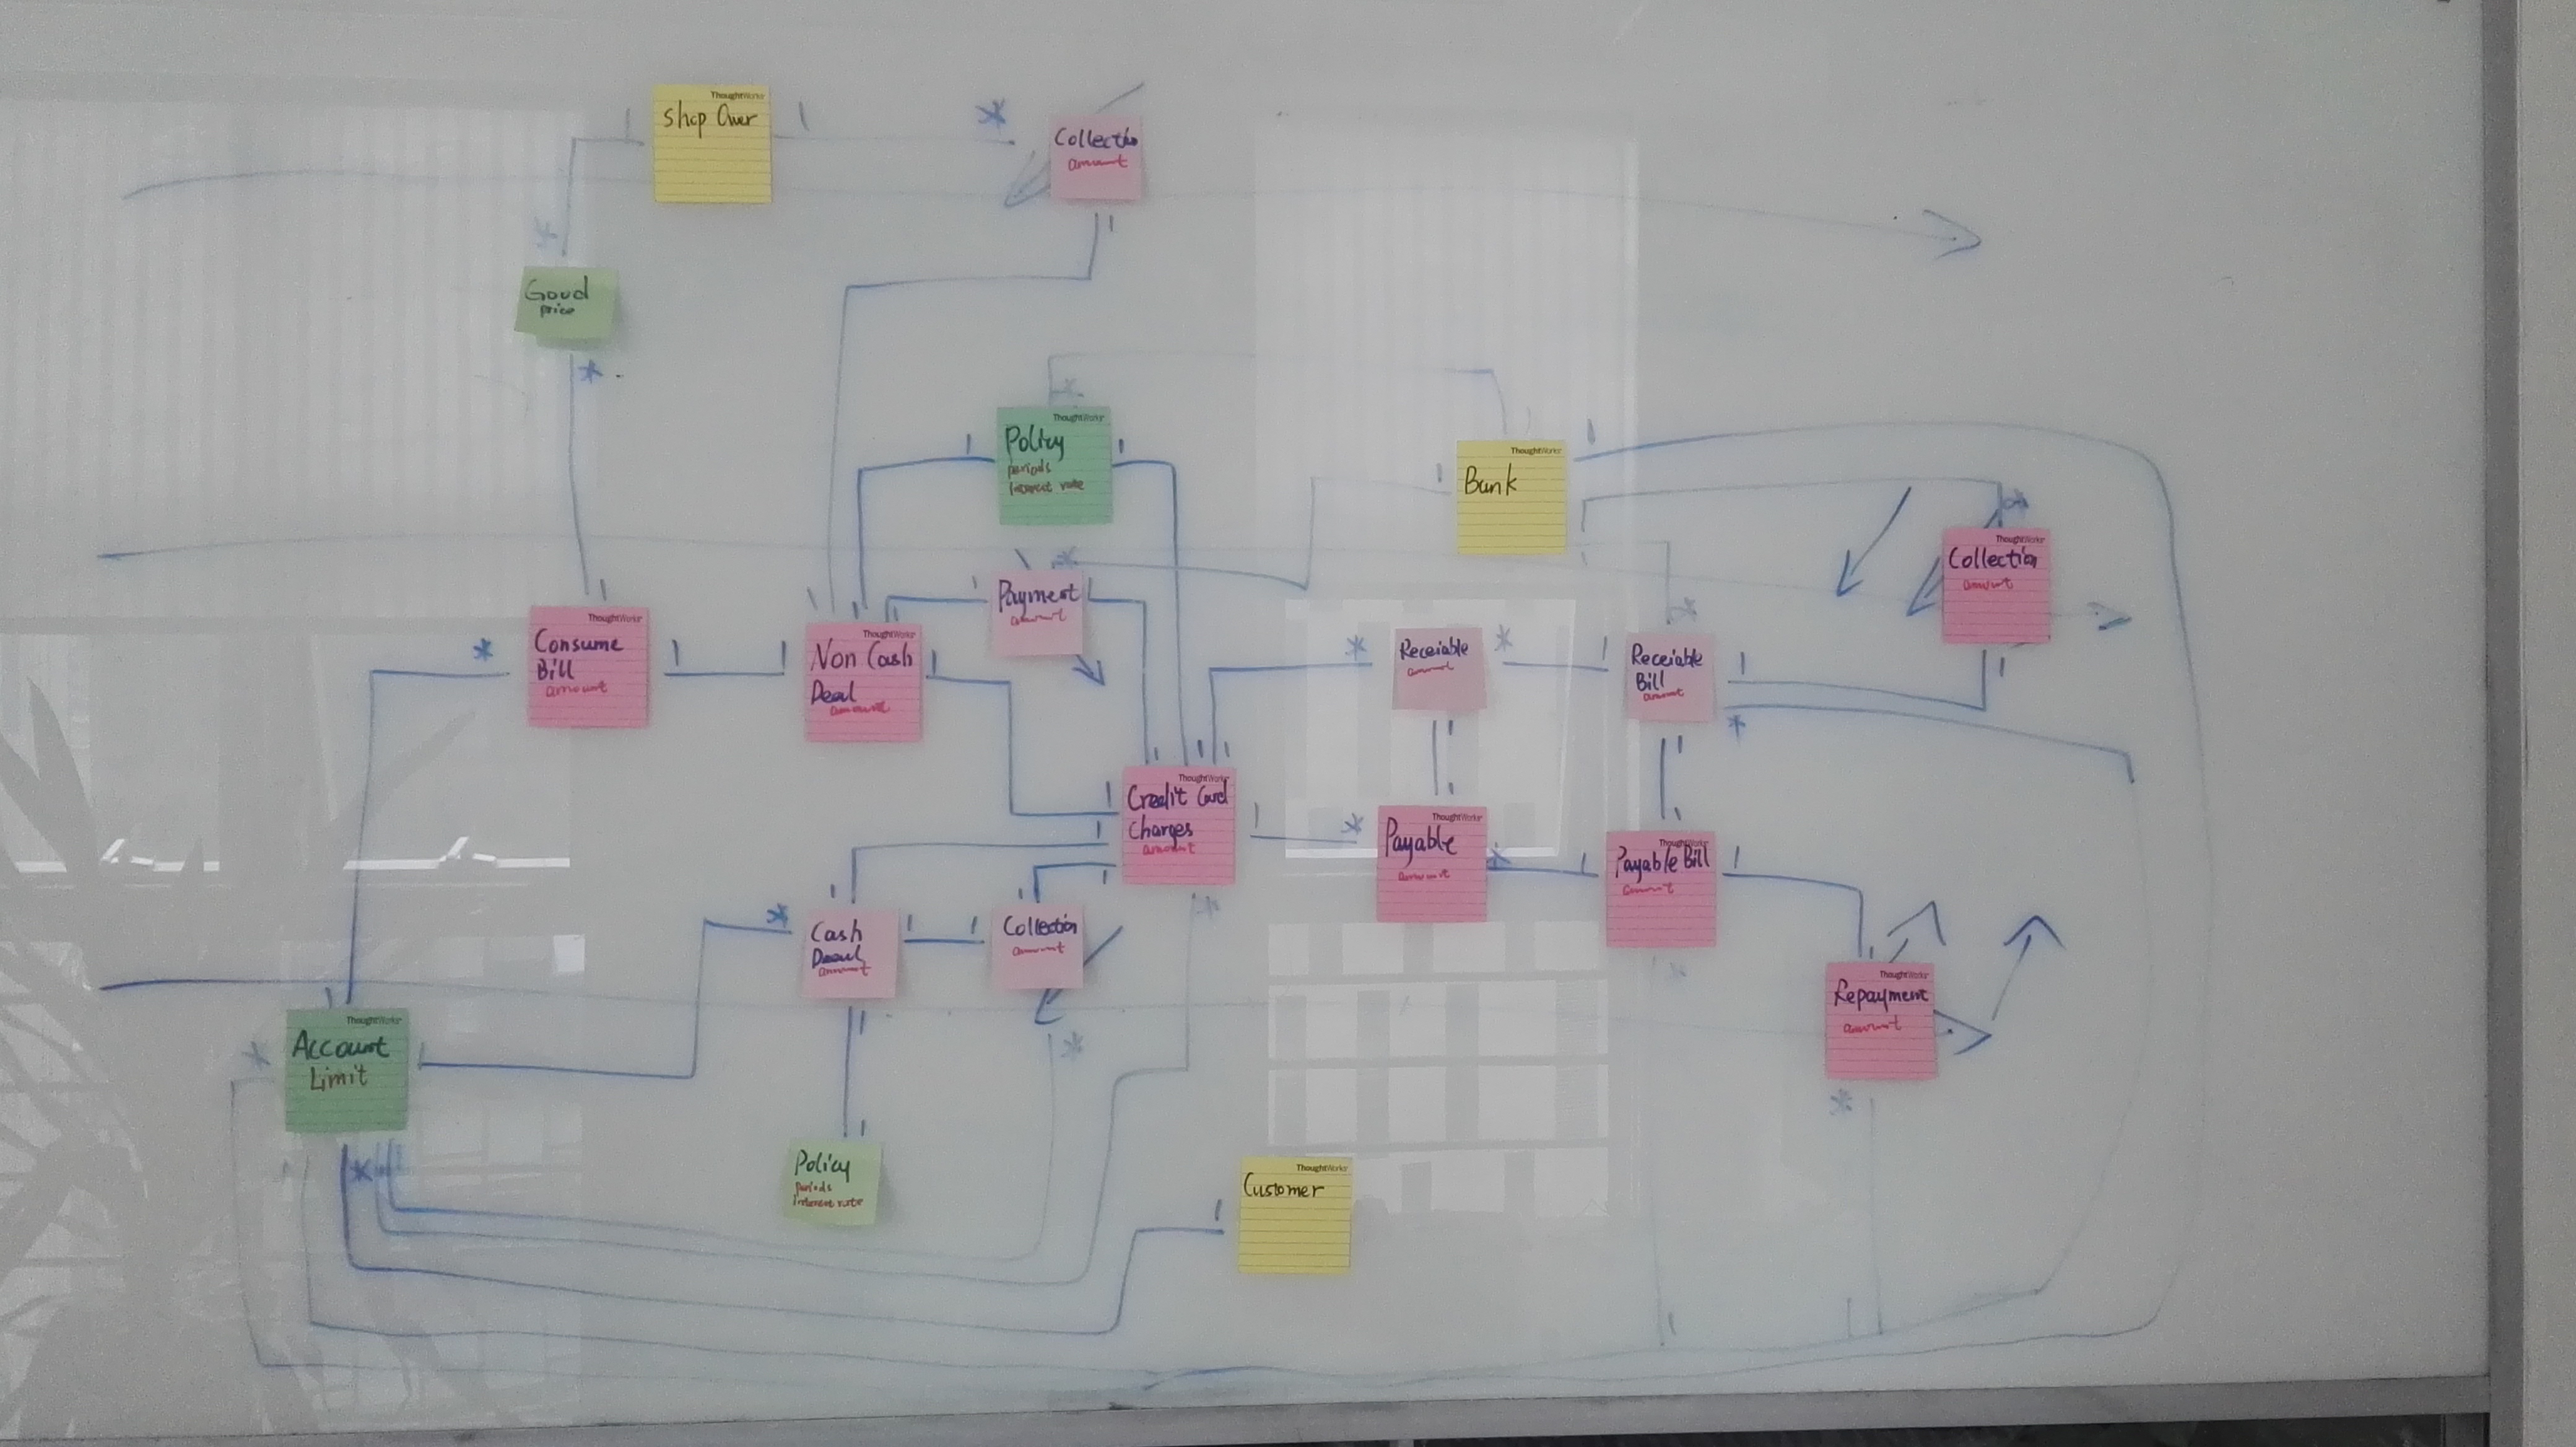 ThoughtWorks
Shop Owner
1
1
*
Collection
amount
1
*
Good
price
*
1
ThoughtWorks
Policy
periods
Interest rate
*
1
1
ThoughtWorks
Bank
1
1
ThoughtWorks
Collection
amount
*
1
Payment
amount
*
1
ThoughtWorks
Consume
Bill
amount
*
1
1
ThoughtWorks
Non Cash
Deal
amount
1
Receiable
amount
*
*
1
Receiable
Bill
amount
*
1
*
1
1
1
1
ThoughtWorks
Credit Card
Charges
amount
1
1
1
1
1
1
*
ThoughtWorks
Payable
amount
*
*
1
ThoughtWorks
Payable Bill
amount
1
1
*
Cash
Deaul
amount
*
1
1
1
Collection
amount
1
*
ThoughtWorks
Repayment
amount
1
*
ThoughtWorks
Account
Limit
*
1
1
*
Policy
periods
Interest rate
1
ThoughtWorks
Customer
1
1
1